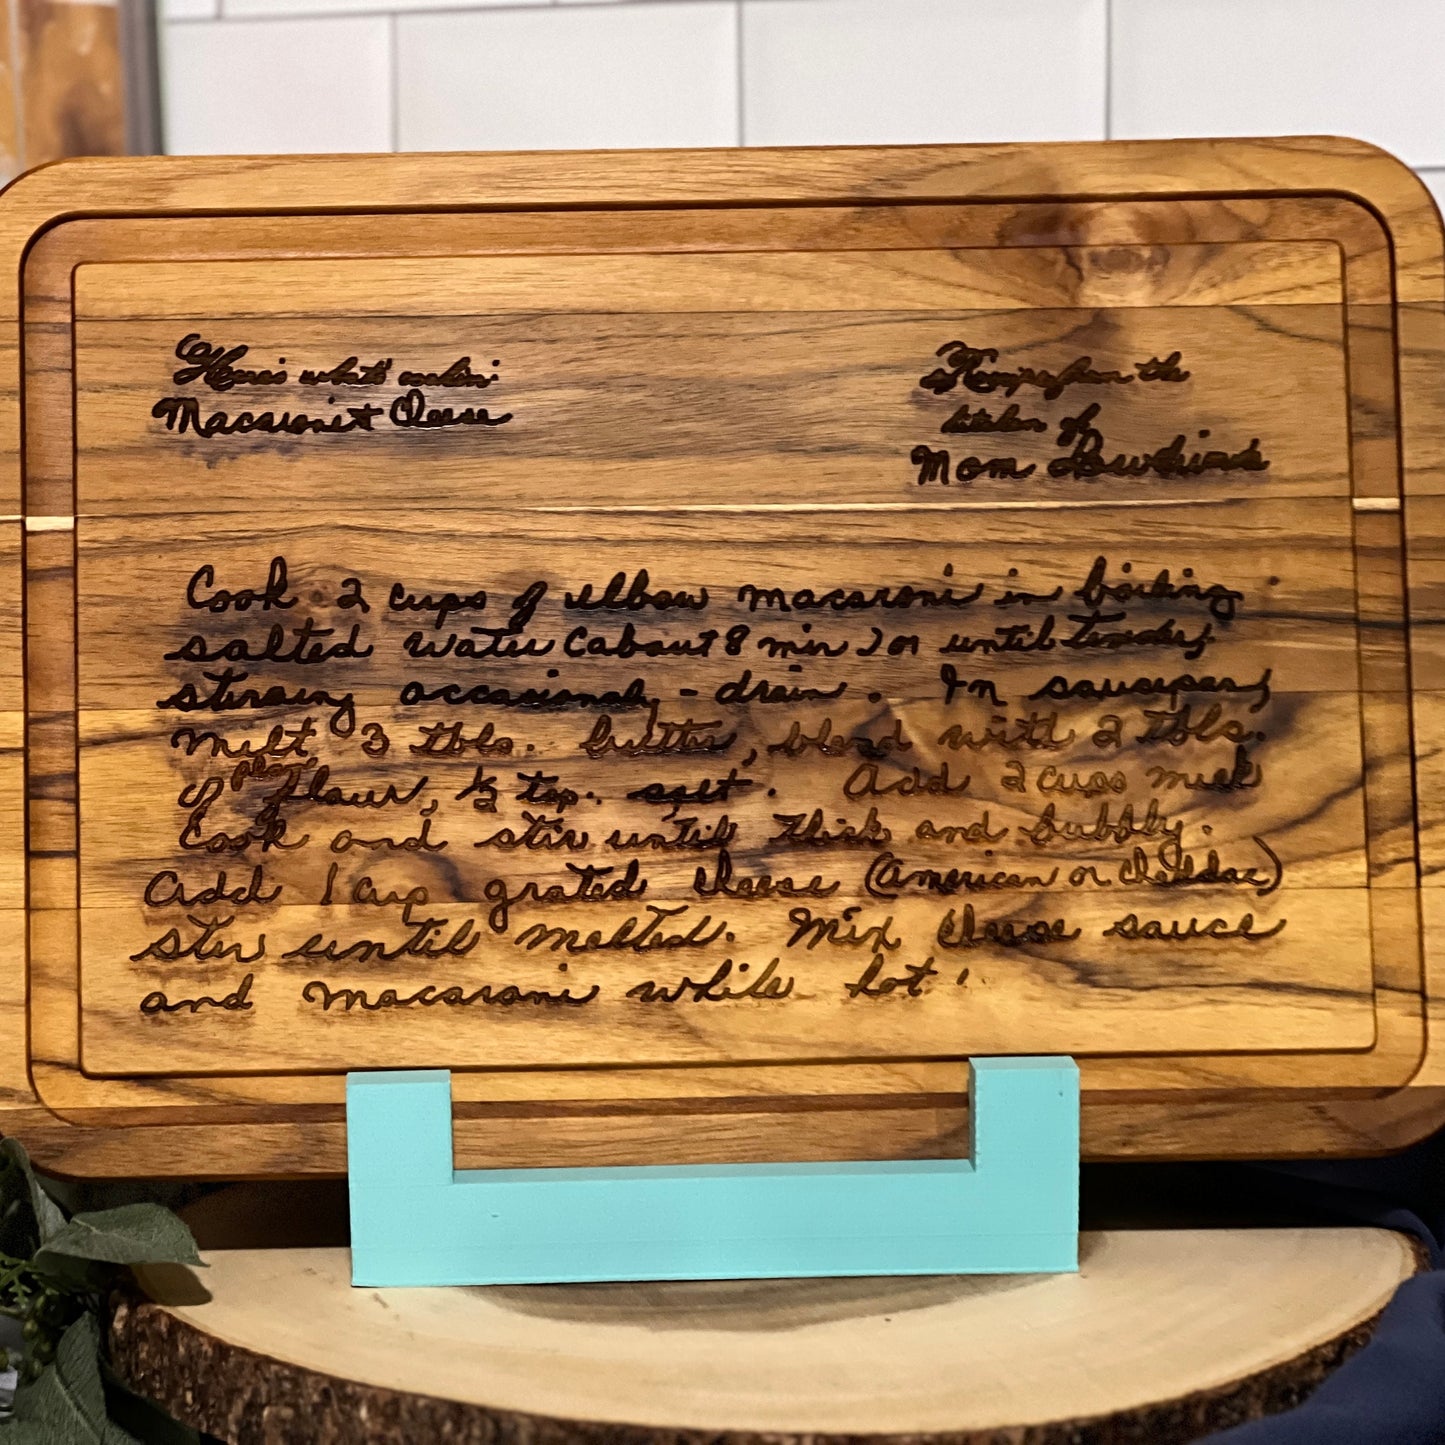 Here's what's cookin'
Macaroni + Cheese
Recipe from the
kitchen of
Mom
Cook 2 cups of elbow macaroni in boiling
salted water (about 8 min) or until tender,
stirring occasionaly - drain. In saucepan,
melt 3 tbls. butter, blend with 2 tbls.
plain
of flour, ½ tsp. salt. Add 2 cups milk
Cook and stir until thick and bubbly.
Add 1 cup grated cheese (American or Cheddar)
stir until melted. Mix cheese sauce
and macaroni while hot!